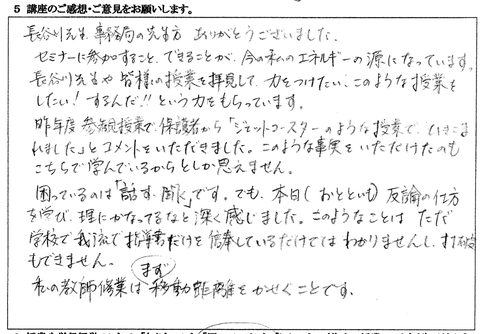 5 講座のご感想・ご意見をお願いします。
長谷川先生、事務局の先生方 ありがとうございました。
セミナーに参加すること、できることが、今の私のエネルギーの源になっています。
長谷川先生や皆様の授業を拝見して、力をつけたい、このような授業を
したい!するんだ!!という力をもらっています。
昨年度 参観授業で、保護者から「ジェットコースターのような授業で、ひきこま
れました」とコメントをいただきました。このような事実をいただけたのも
こちらで学んでいるからとしか思えません。
困っているのは「話す、聞く」です。でも、本日(おとといも) 反論の仕方
を学び、理にかなってるなと深く感じました。このようなことは ただ
学校で我流で指導書だけを信奉しているだけではわかりませんし、打破
もできません。
私の教師修業は まず 移動距離をかせぐことです。